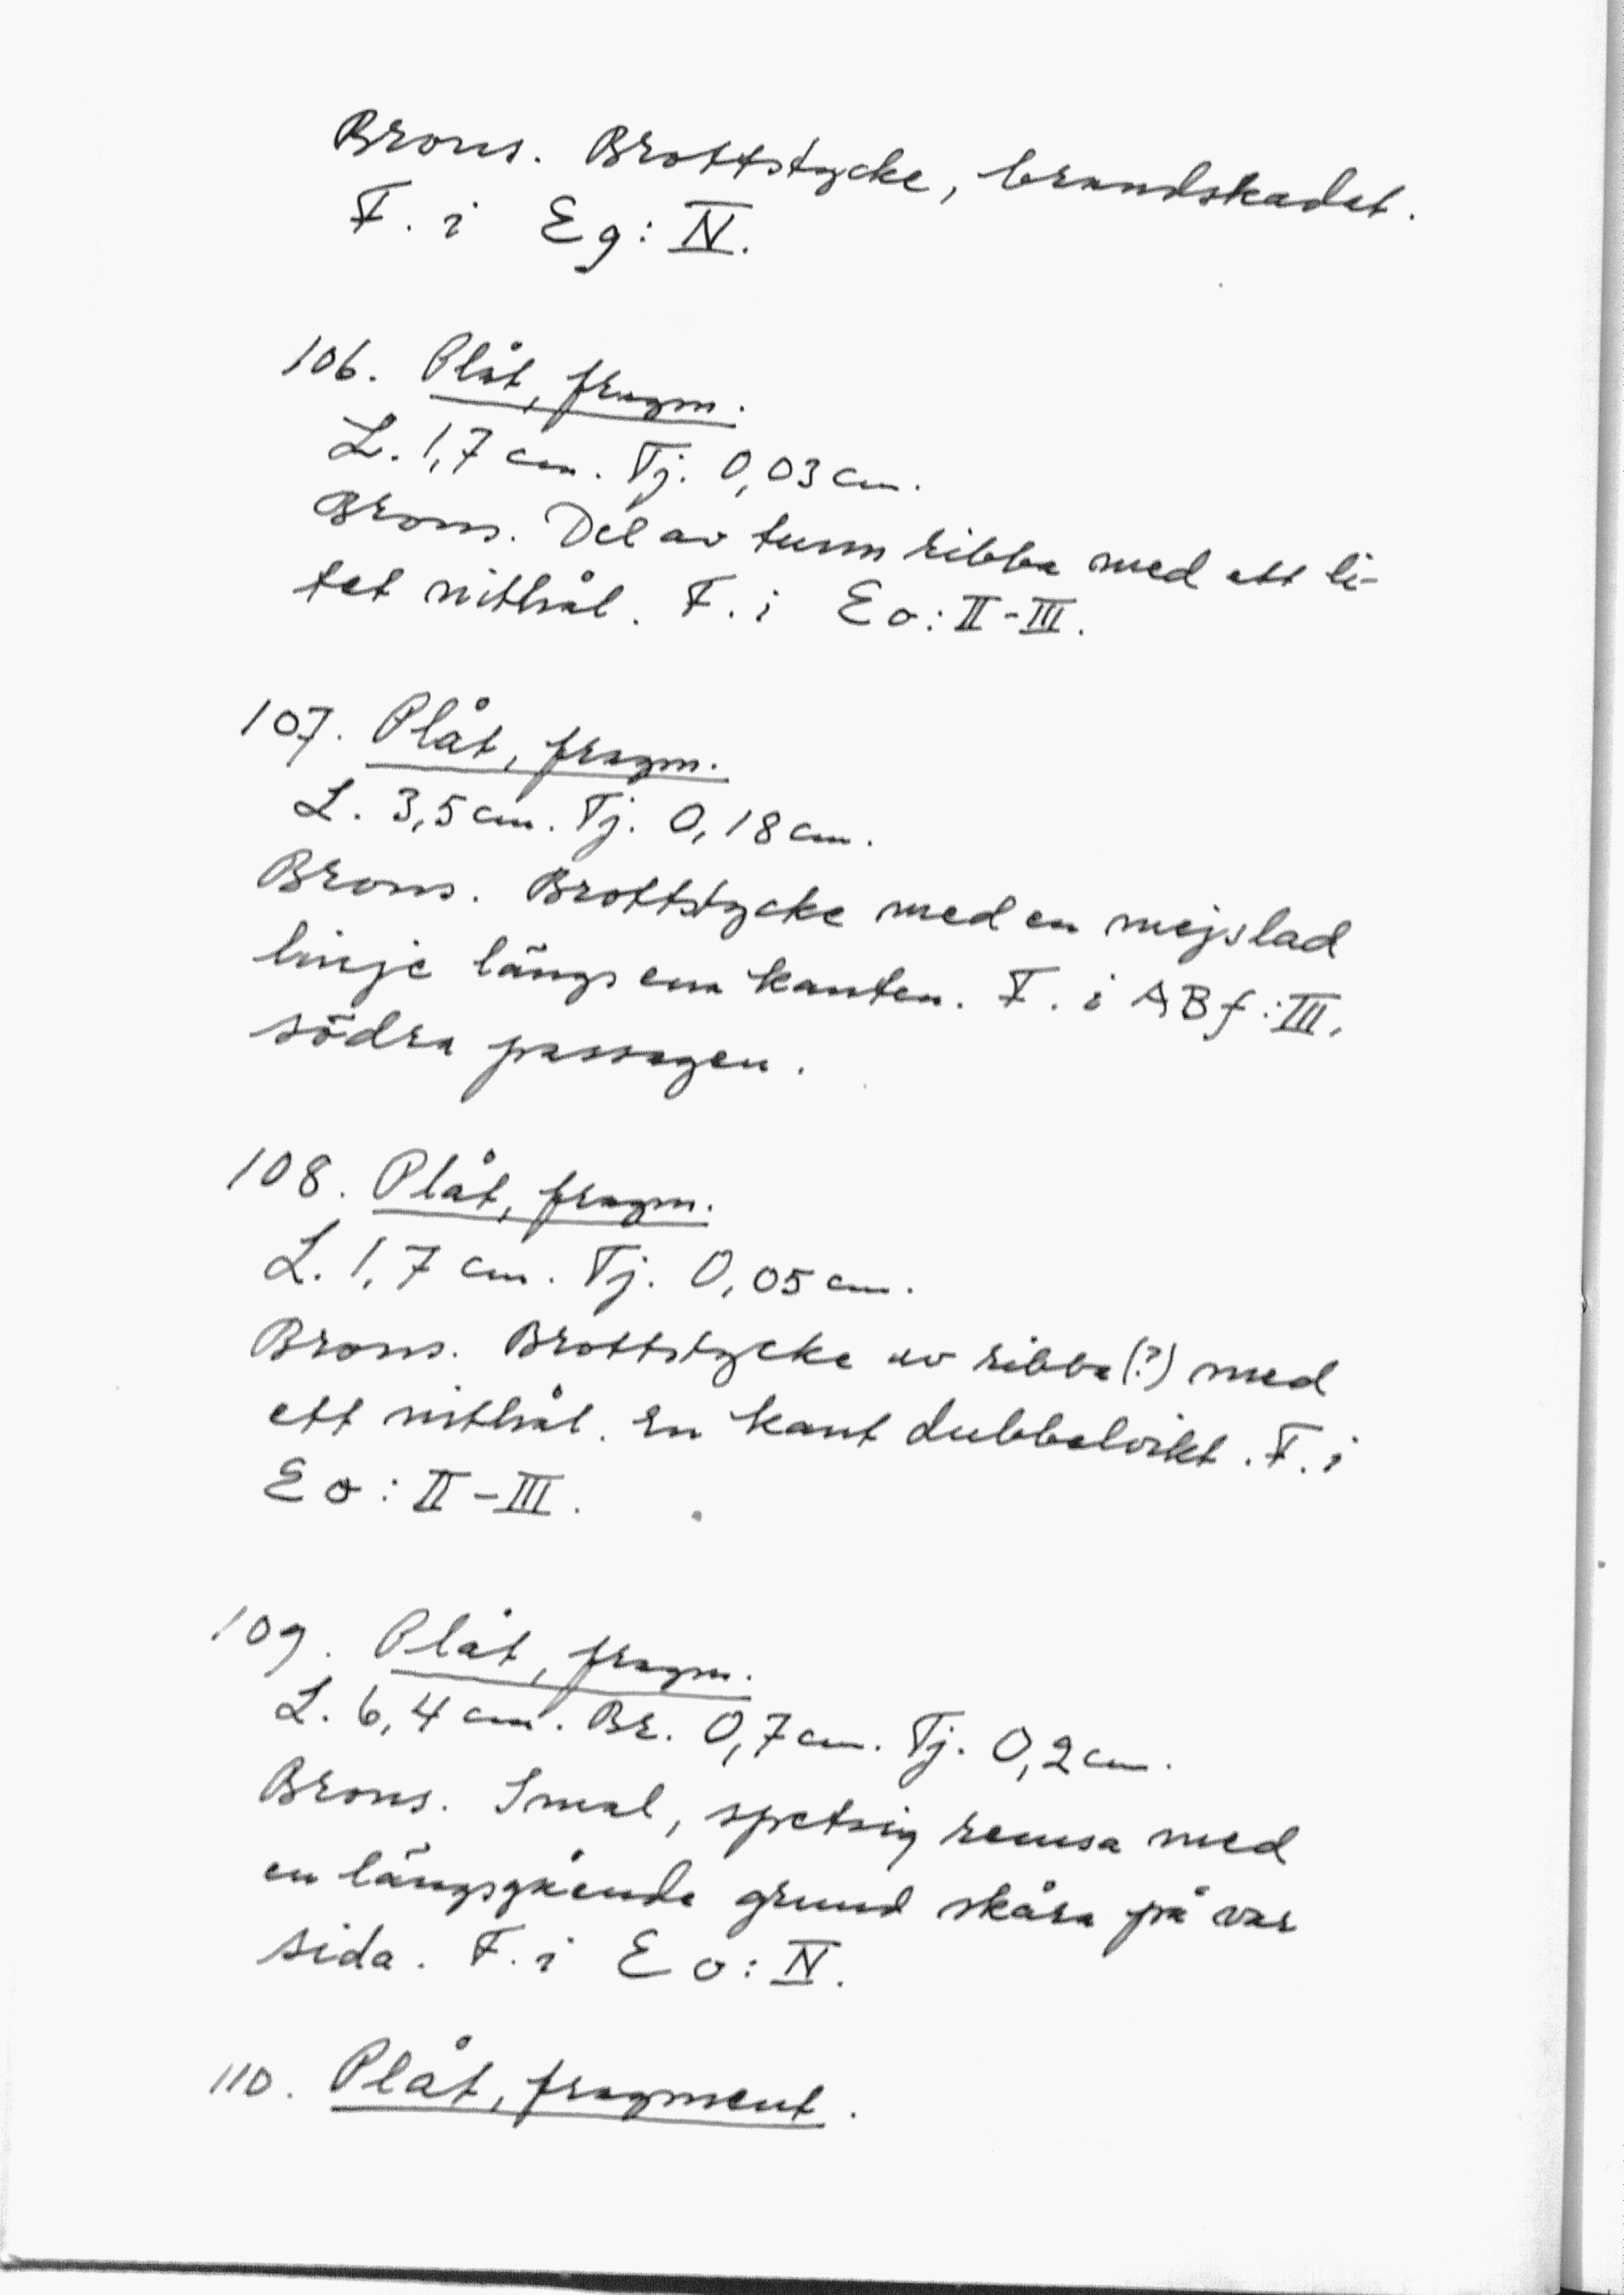 Brons. Brottstycke, brandskadat.
F. i Eg: IV.
106. Plåt, fragm.
L. 1,7 cm. Tj. 0,03 cm.
Brons. Del av tunn ribba med ett li-
tet nithål. F. i Eo: II-III.
107. Plåt, fragm.
L. 3,5 cm. Tj. 0,18 cm.
Brons. Brottstycke med en mejslad
linje längs ena kanten. F. i ABf: III,
södra passagen.
108. Plåt, fragm.
L. 1,7 cm. Tj. 0,05 cm.
Brons. Brottstycke av ribba (?) med
ett nithål. En kant dubbelvikt. F. i
Eo: II-III.
109. Plåt, fragm.
L. 6,4 cm. Br. 0,7 cm. Tj. 0,2 cm.
Brons. Smal, spetsig remsa med
en längsgående grund skåra på var
sida. F. i Eo: IV.
110. Plåt, fragment.